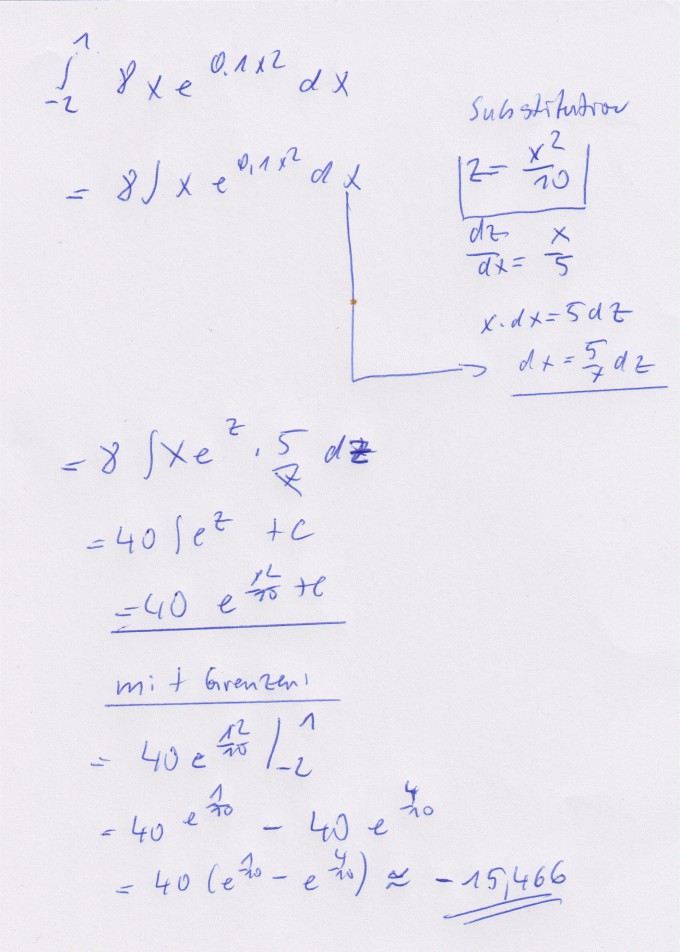 ∫₋₂¹ 8 x e^(0.1x²) dx
= 8∫ x e^(0,1x²) dx
Substitution
|z = x²/10|
dz/dx = x/5
x·dx = 5dz
dx = 5/x dz
= 8 ∫xe^z · 5/x dz
= 40 ∫e^z + c
= 40 e^(x²/10) + c
mit Grenzen:
= 40 e^(x²/10) |₋₂¹
= 40 e^(1/10) - 40 e^(4/10)
= 40 (e^(1/10) - e^(4/10)) ≈ -15,466